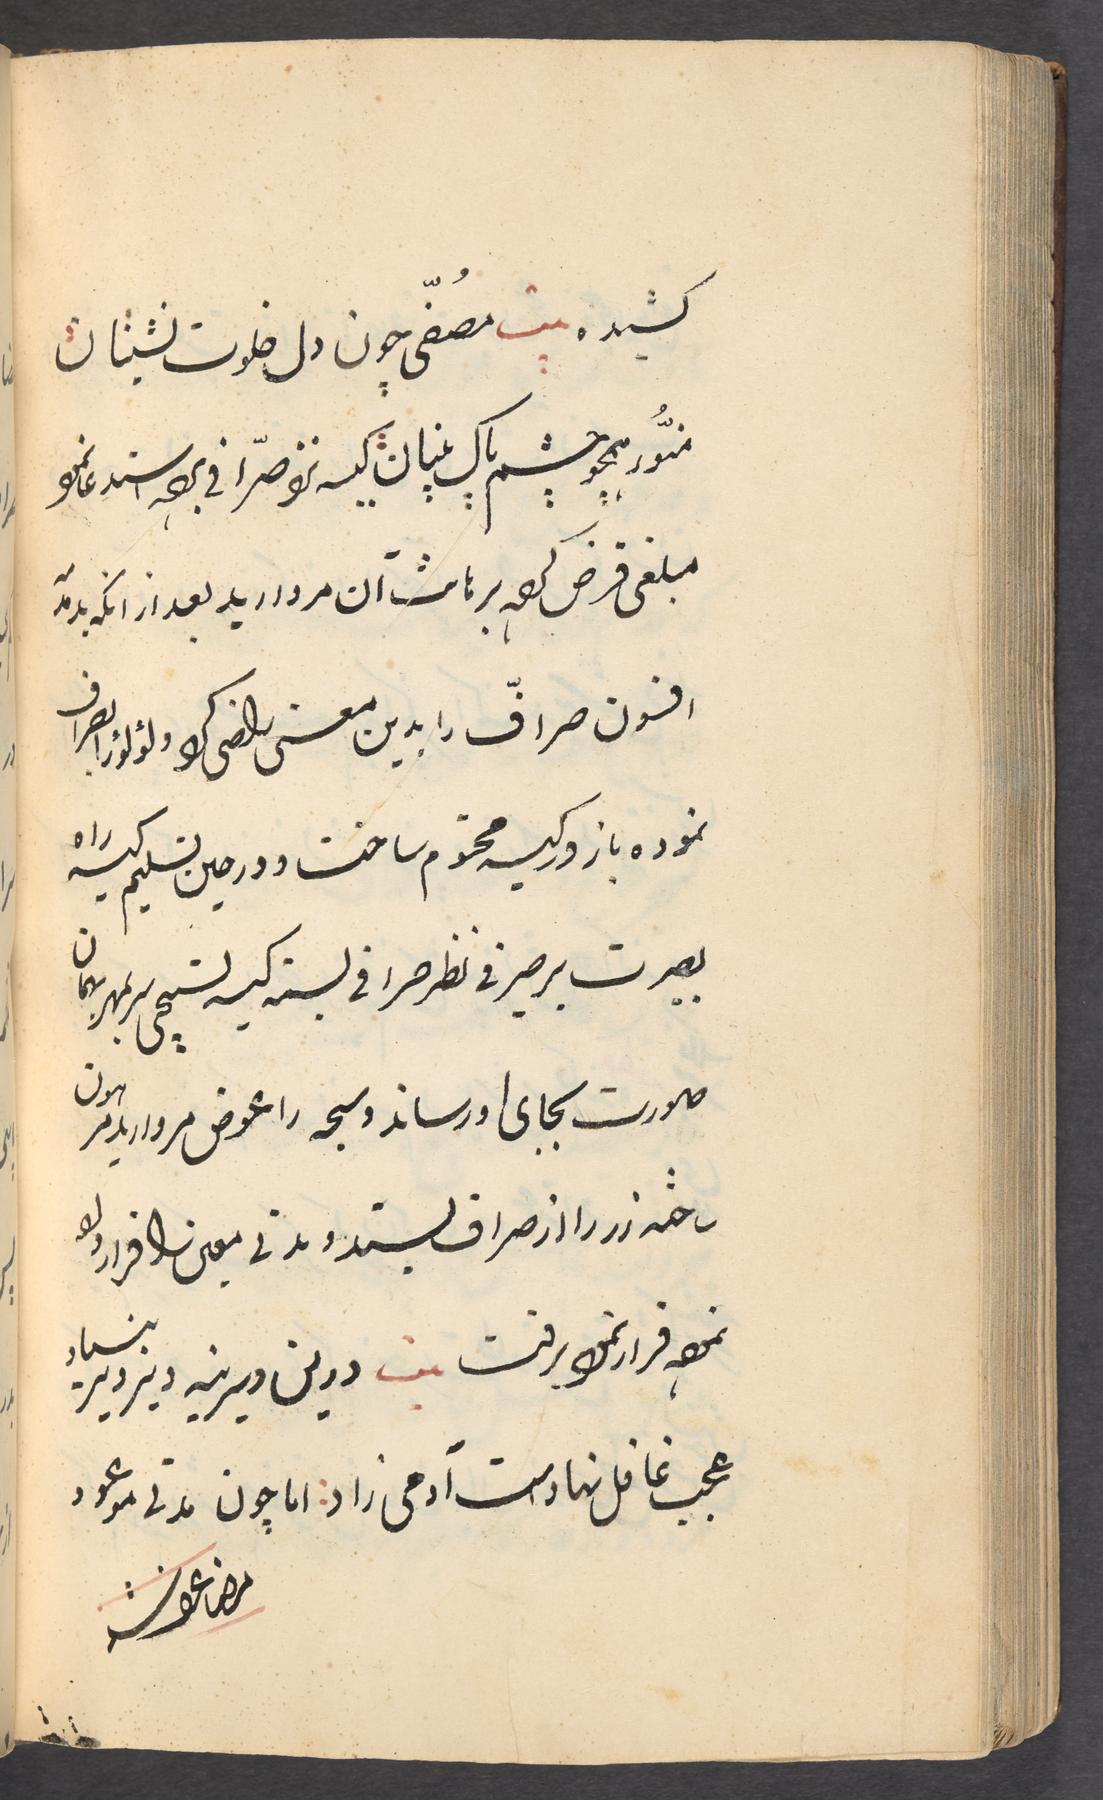 کشیده بیت مصُفّی چون دل خلوت نشینان
منوُّر همچو چشم پاک بینان کیسه نزد صرّافی برده استدعا نمود
مبلغی قرض کرده بر داشت آن مروارید بعد از انکه بدمدمه
افسون صرافّ را بدین معنی راضی کرد و لؤلؤ را بصراف
نموده باز در کیسه محتوم ساخت و در حین تسلیم کیسه راه
بصیرت بر صیرفی نظر صرافی بسته کیسه تسبیحی سر بمهر بهمان
صورت بجای او رساند و سبحه را عوض مروارید مرهون
ساخته زر را از صراف بستد و مدتی معین را قرار داد
نموده قرار نموده برفت بیت درین دیرینه دیر دیر بنیاد
عجب غافل نهادست آدمی زاد : اما چون مدتی موعود